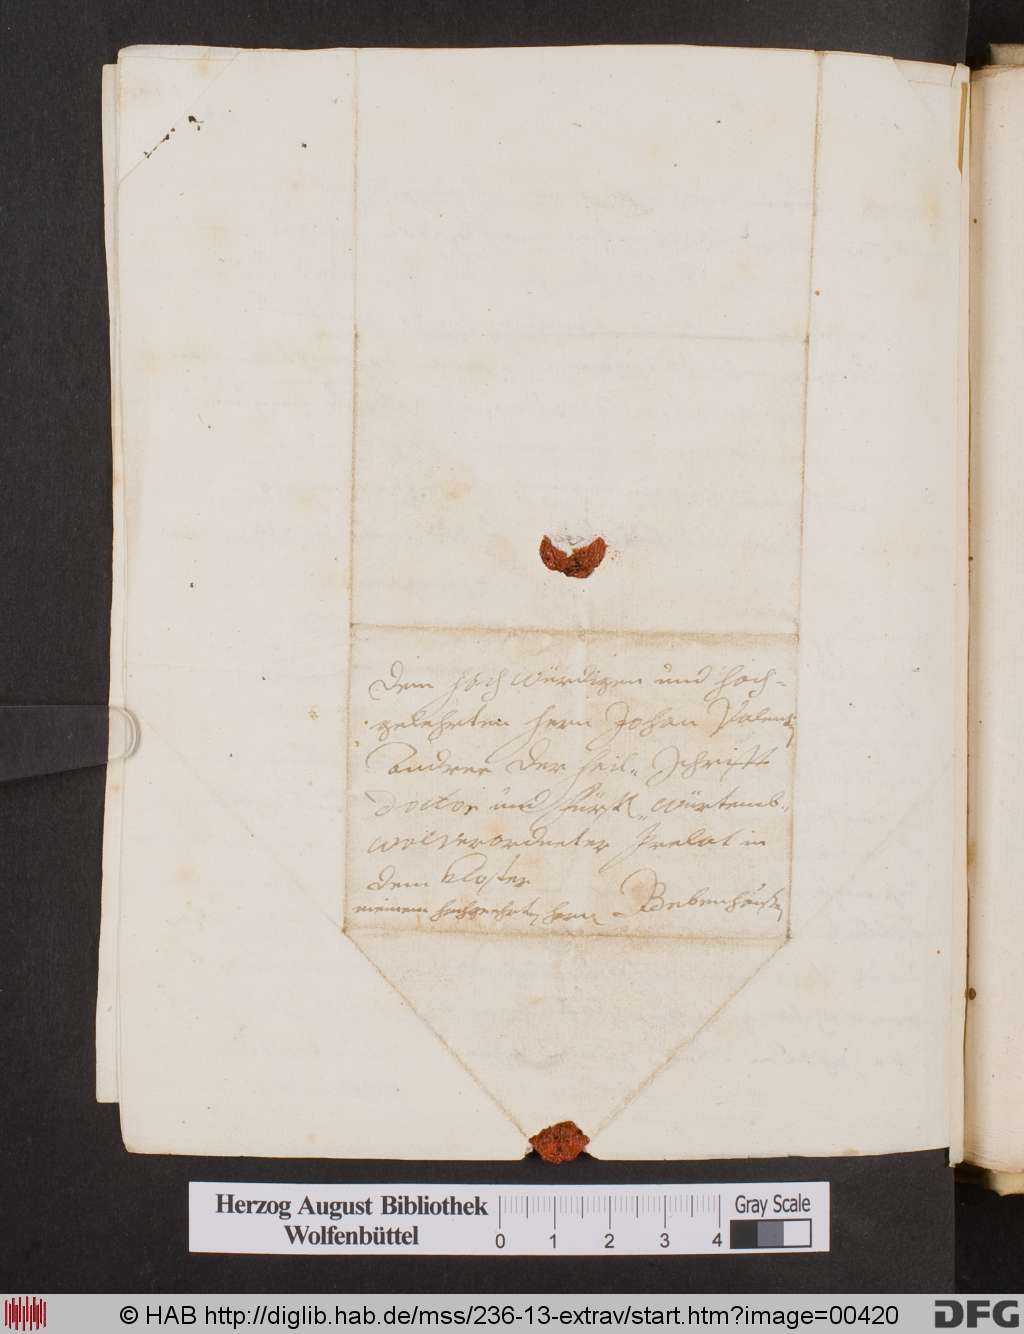 Dem Hoch Würdigen und Hoch=
gelehrten Hern Johan Valent:
Andreæ der heil. Schrifft
Doctor und Fürstl. Würtemb.
wolverordneter Prelat in
dem Closter
meinem hochgeehrten Hern Bebenhausen
Herzog August Bibliothek
Wolfenbüttel
0 1 2 3 4
Gray Scale
© HAB http://diglib.hab.de/mss/236-13-extrav/start.htm?image=00420
DFG